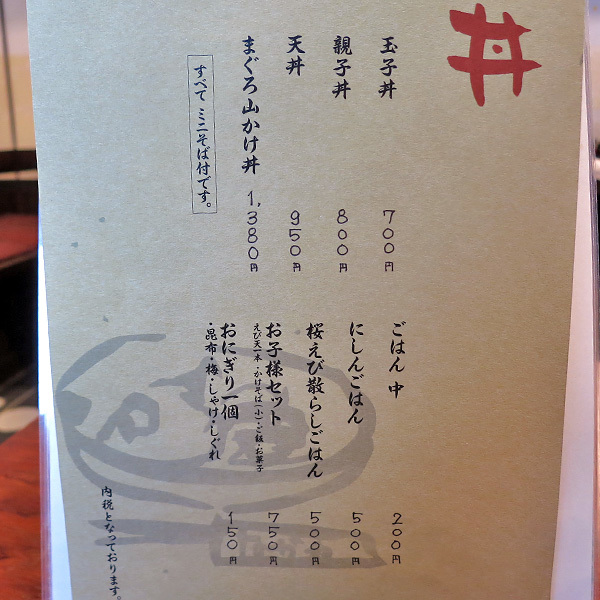 丼
玉子丼 700円
親子丼 800円
天丼 950円
まぐろ山かけ丼 1,380円
すべて ミニそば付です。
ごはん 中 200円
にしんごはん 500円
桜えび散らしごはん 500円
お子様セット 750円
えび天一本・かけそば(小)・ご飯・お菓子
おにぎり一個 150円
・昆布・梅・しゃけ・しぐれ
内税となっております。